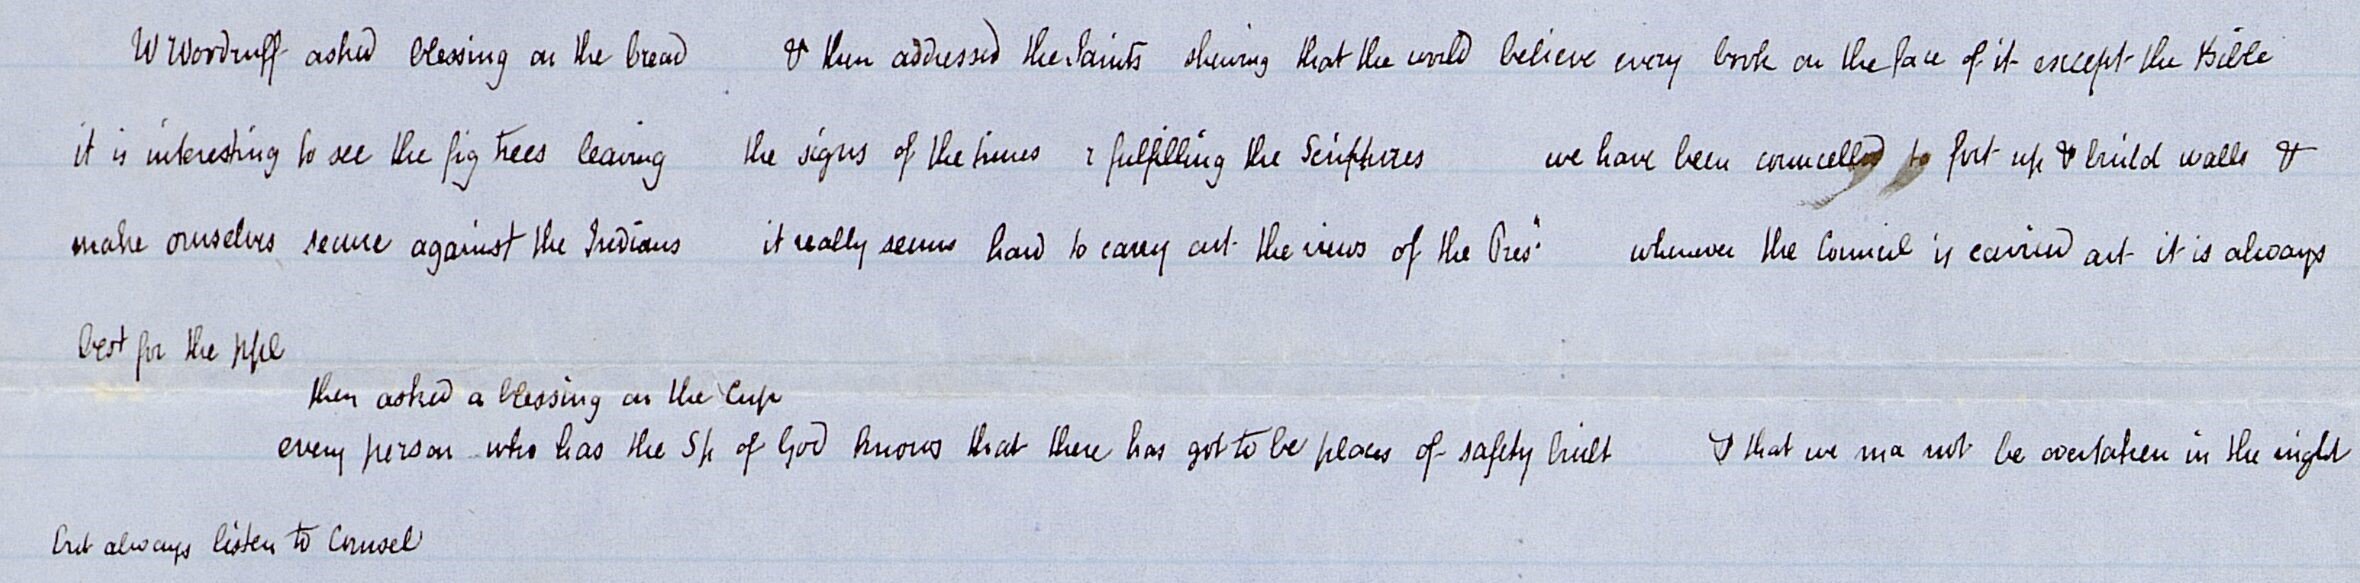 W Woodruff asked blessing on the bread & then addressed the Saints shewing that the world believe every book on the face of it except the Bible
it is interesting to see the fig trees leaving the signs of the times & fulfilling the Scriptures we have been councelled to fort up & build walls &
make ourselves secure against the Indians it really seems hard to carry out the views of the Pres.t whenever the Council is carried out it is always
best for the ppl
then asked a blessing on the Cup
every person who has the Sp of God knows that there has got to be places of safety built & that we ma not be overtaken in the night
but always listen to Counsel